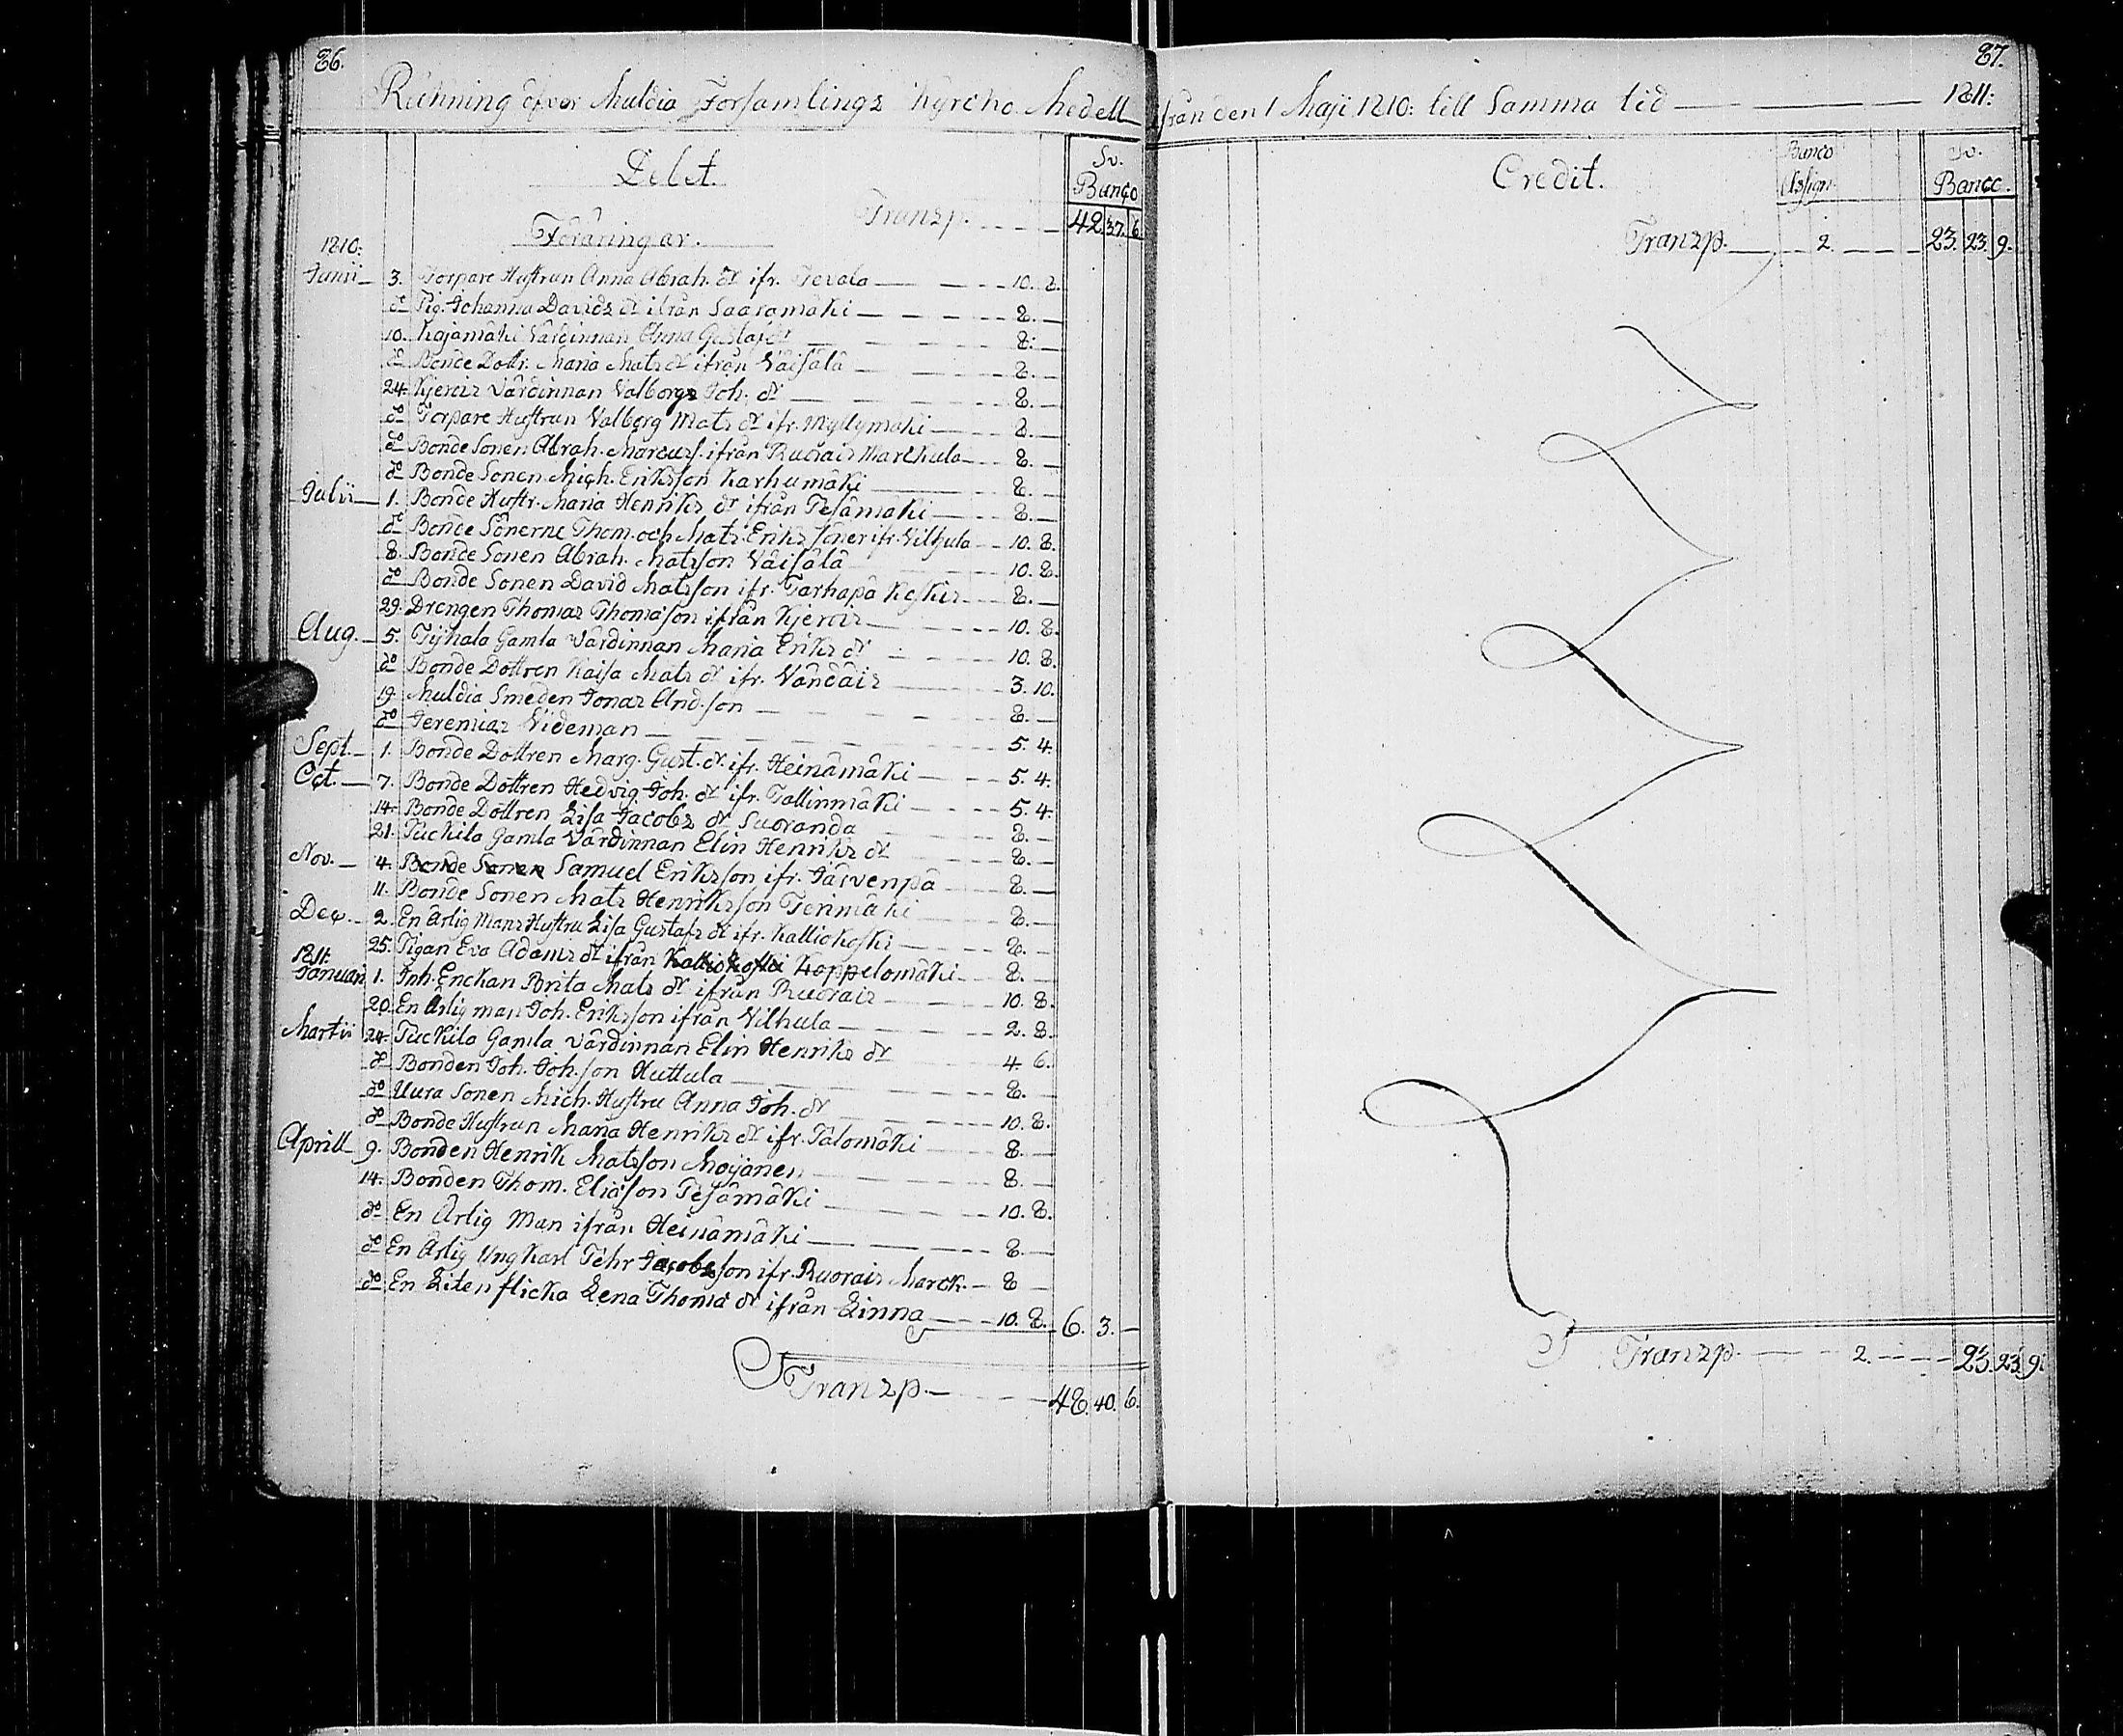 86.
Räkning öfver Muldia Församlings Kyrcko Medell
Debet.
Sv. Banco
Transp. 42. 37. 6.
Föräringar.
1810:
Junii 3. Torpare Hustrun Anna Abrah. dr ifr. Tevala 10. 8.
do Pig. Johanna Davids dr ifrån Saaramäki 8.
10. Kojamäki Värdinnan Anna Gustafs dr 8.
do Bonde Dottr. Maria Mats dr ifrån Väisälä 8.
24. Kjerois Värdinnan Valborgs Joh. dr 8.
do Torpare Hustrun Valborg Mats dr ifr. Myllymäki 8.
do Bonde Sonen Abrah. Marcuss. ifrån Ruorais Marckula 8.
do Bonde Sonen Mich. Eriksson Karhumäki 8.
Julii 1. Bonde Hustr. Maria Henriks dr ifrån Pesämäki 8.
do Bonde Sönerne Thom. och Mats Eriks Söner ifr. Vilhula 10. 8.
8. Bonde Sonen Abrah. Matsson Väisälä 10. 8.
do Bonde Sonen David Matsson ifr. Tarhapä Koskis 8.
29. Drengen Thomas Thomasson ifrån Kjerois 10. 8.
Aug. 5. Tijhala Gamla Värdinnan Maria Eriks dr 10. 8.
do Bonde Dottren Kaisa Mats dr ifr. Vändäis 3. 10.
19. Muldia Smeden Jonas And.son 8.
do Jeremias Videman 5. 4.
Sept. 1. Bonde Dottren Marg. Gust. dr. ifr. Heinämäki 5. 4.
Oct. 7. Bonde Dottren Hedvig Joh. dr ifr. Tallinmäki 5. 4.
14. Bonde Dottren Lisa Jacobs dr Suoranda 8.
21. Tuckila Gamla Värdinnan Elin Henriks dr 8.
Nov. 4. Bonde Sonen Samuel Eriksson ifr. Järvenpä 8.
11. Bonde Sonen Mats Henriksson Terimäki 8.
Dec. 2. En Ärlig Mans Hustru Lisa Gustafs dr ifr. Kalliokoski 8.
25. Pigan Eva Adams dr ifrån Kalliokoski Koppelomäki 8.
1811:
Januari 1. Inh. Enckan Brita Mats dr ifrån Ruorais 10. 8.
20. En Ärlig man Joh. Eriksson ifrån Vilhula 2. 8.
Martii 24. Tuckila Gamla Värdinnan Elin Henriks dr 4. 6.
do Bonden Joh. Joh.son Huttula 8.
do Uura Sonen Mich. Hustru Anna Joh. dr 10. 8.
do Bonde Hustrun Maria Henriks dr ifr. Talomäki 8.
Aprill 9. Bonden Henrik Matsson Moijanen 8.
14. Bonden Thom. Eliasson Pesämäki 10. 8.
do En Ärlig Man ifrån Heinämäki 8.
do En Ärlig Ung Karl Pehr Jacobsson ifr. Ruorais Marck. 8
do En Liten flicka Lena Thoma dr ifrån Linna 10. 8. 6. 3.
Transp. 48. 40. 6.
87.
från den 1 Maji 1810: till Samma tid 1811:
Credit.
Banco Assign.
Sv. Banco.
Transp. 2. 23. 23. 9.
Transp. 2. 23. 23. 9.